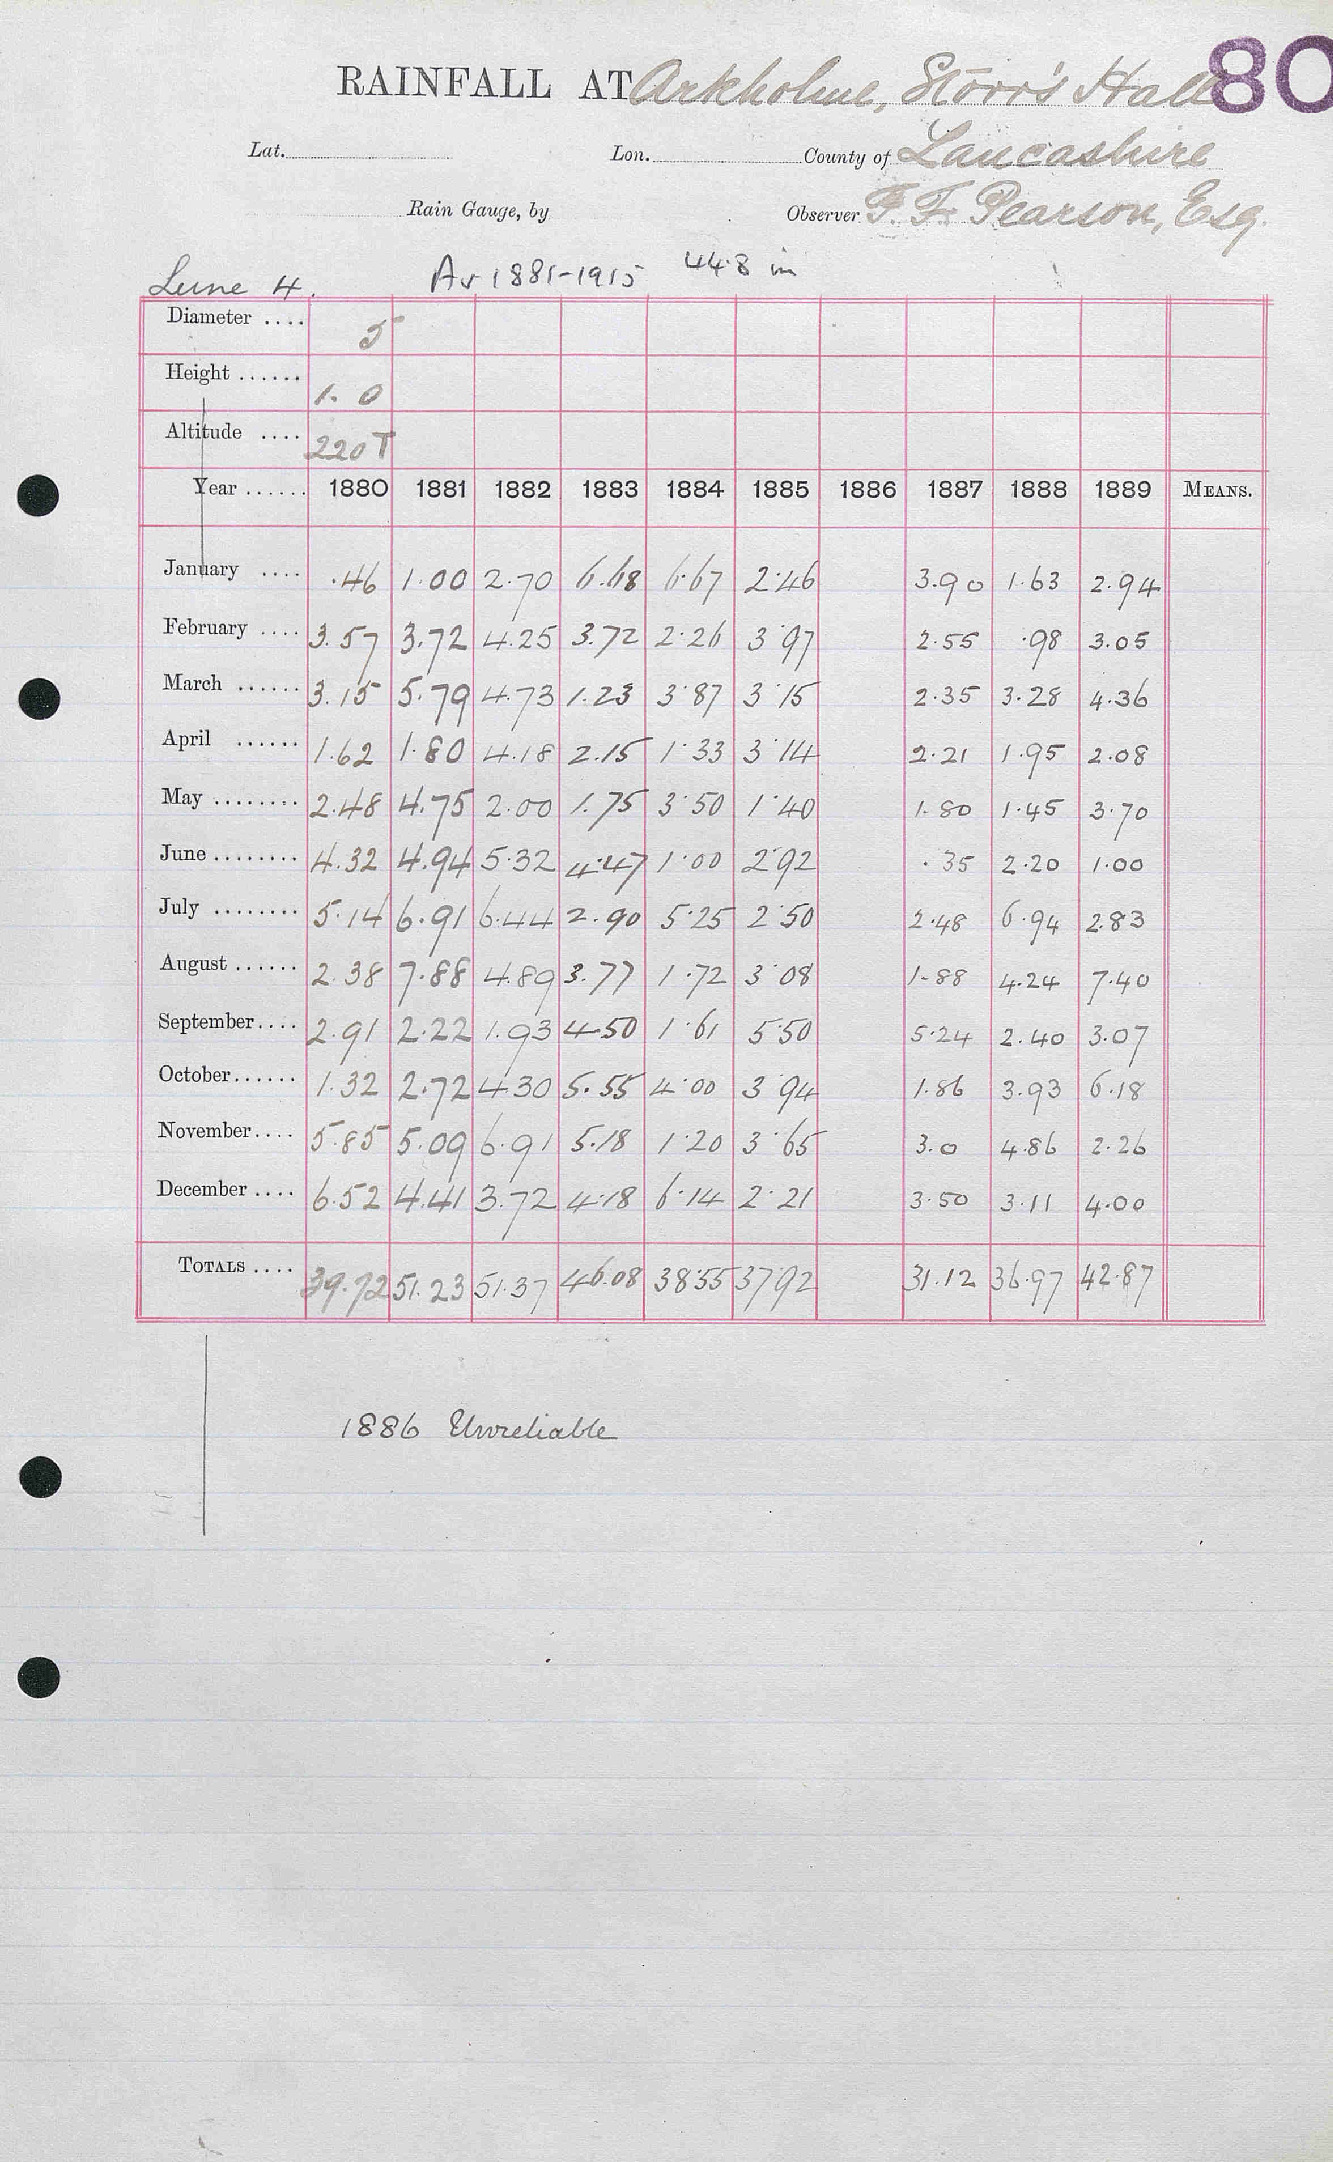 80
RAINFALL AT Arkholme, Storr's Hall
Lat. Lon. County of Lancashire
Rain Gauge, by Observer F. F. Pearson, Esq.
Lune 4. Av 1881-1915 44.8 in
Diameter .... 5
Height ...... 1.0
Altitude .... 220 T
Year ...... 1880 1881 1882 1883 1884 1885 1886 1887 1888 1889 MEANS.
January .... .46 1.00 2.70 6.68 6.67 2.46 3.90 1.63 2.94
February .... 3.57 3.72 4.25 3.72 2.26 3.97 2.55 .98 3.05
March ...... 3.15 5.79 4.73 1.23 3.87 3.15 2.35 3.28 4.36
April ...... 1.62 1.80 4.18 2.15 1.33 3.14 2.21 1.95 2.08
May ........ 2.48 4.75 2.00 1.75 3.50 1.40 1.80 1.45 3.70
June ........ 4.32 4.94 5.32 4.47 1.00 2.92 .35 2.20 1.00
July ........ 5.14 6.91 6.44 2.90 5.25 2.50 2.48 6.94 2.83
August ...... 2.38 7.88 4.89 3.77 1.72 3.08 1.88 4.24 7.40
September.... 2.91 2.22 1.93 4.50 1.61 5.50 5.24 2.40 3.07
October...... 1.32 2.72 4.30 5.55 4.00 3.94 1.86 3.93 6.18
November.... 5.85 5.09 6.91 5.18 1.20 3.65 3.0 4.86 2.26
December .... 6.52 4.41 3.72 4.18 6.14 2.21 3.50 3.11 4.00
TOTALS .... 39.72 51.23 51.37 46.08 38.55 37.92 31.12 36.97 42.87
1886 Unreliable